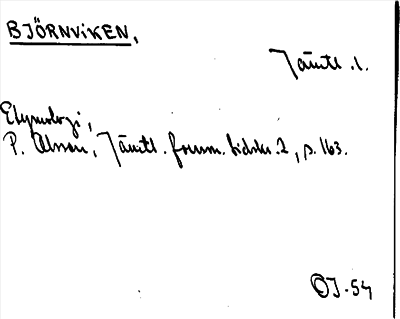 BJÖRNVIKEN,
Jämtl. l.
Etymologi,
P. Olsson, Jämtl. fornm. tidskr. 2, s. 163.
OJ-54